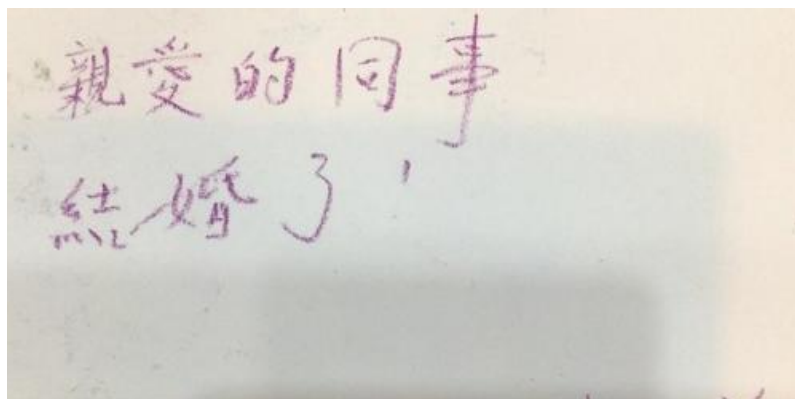 親愛的同事
結婚了，